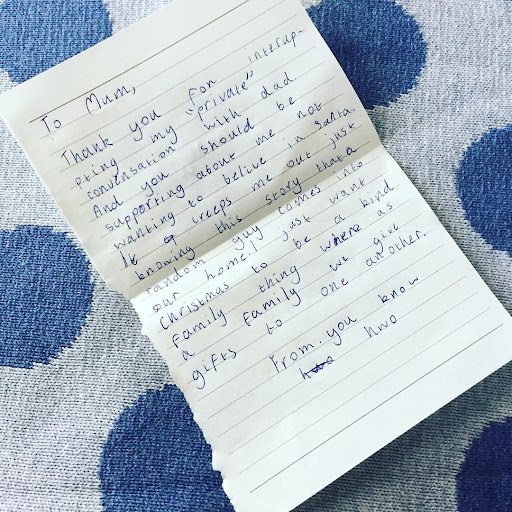 To Mum,
Thank you for interup-
pting my "private"
convensation with dad.
And you should be
supporting about me not
wanting to belive in santa.
It creeps me out just
knowing this story that a
random guy comes into
our home. I just want
Christmas to be a kind
family thing where as
a family we give
gifts to one another.
From. you know
hwo